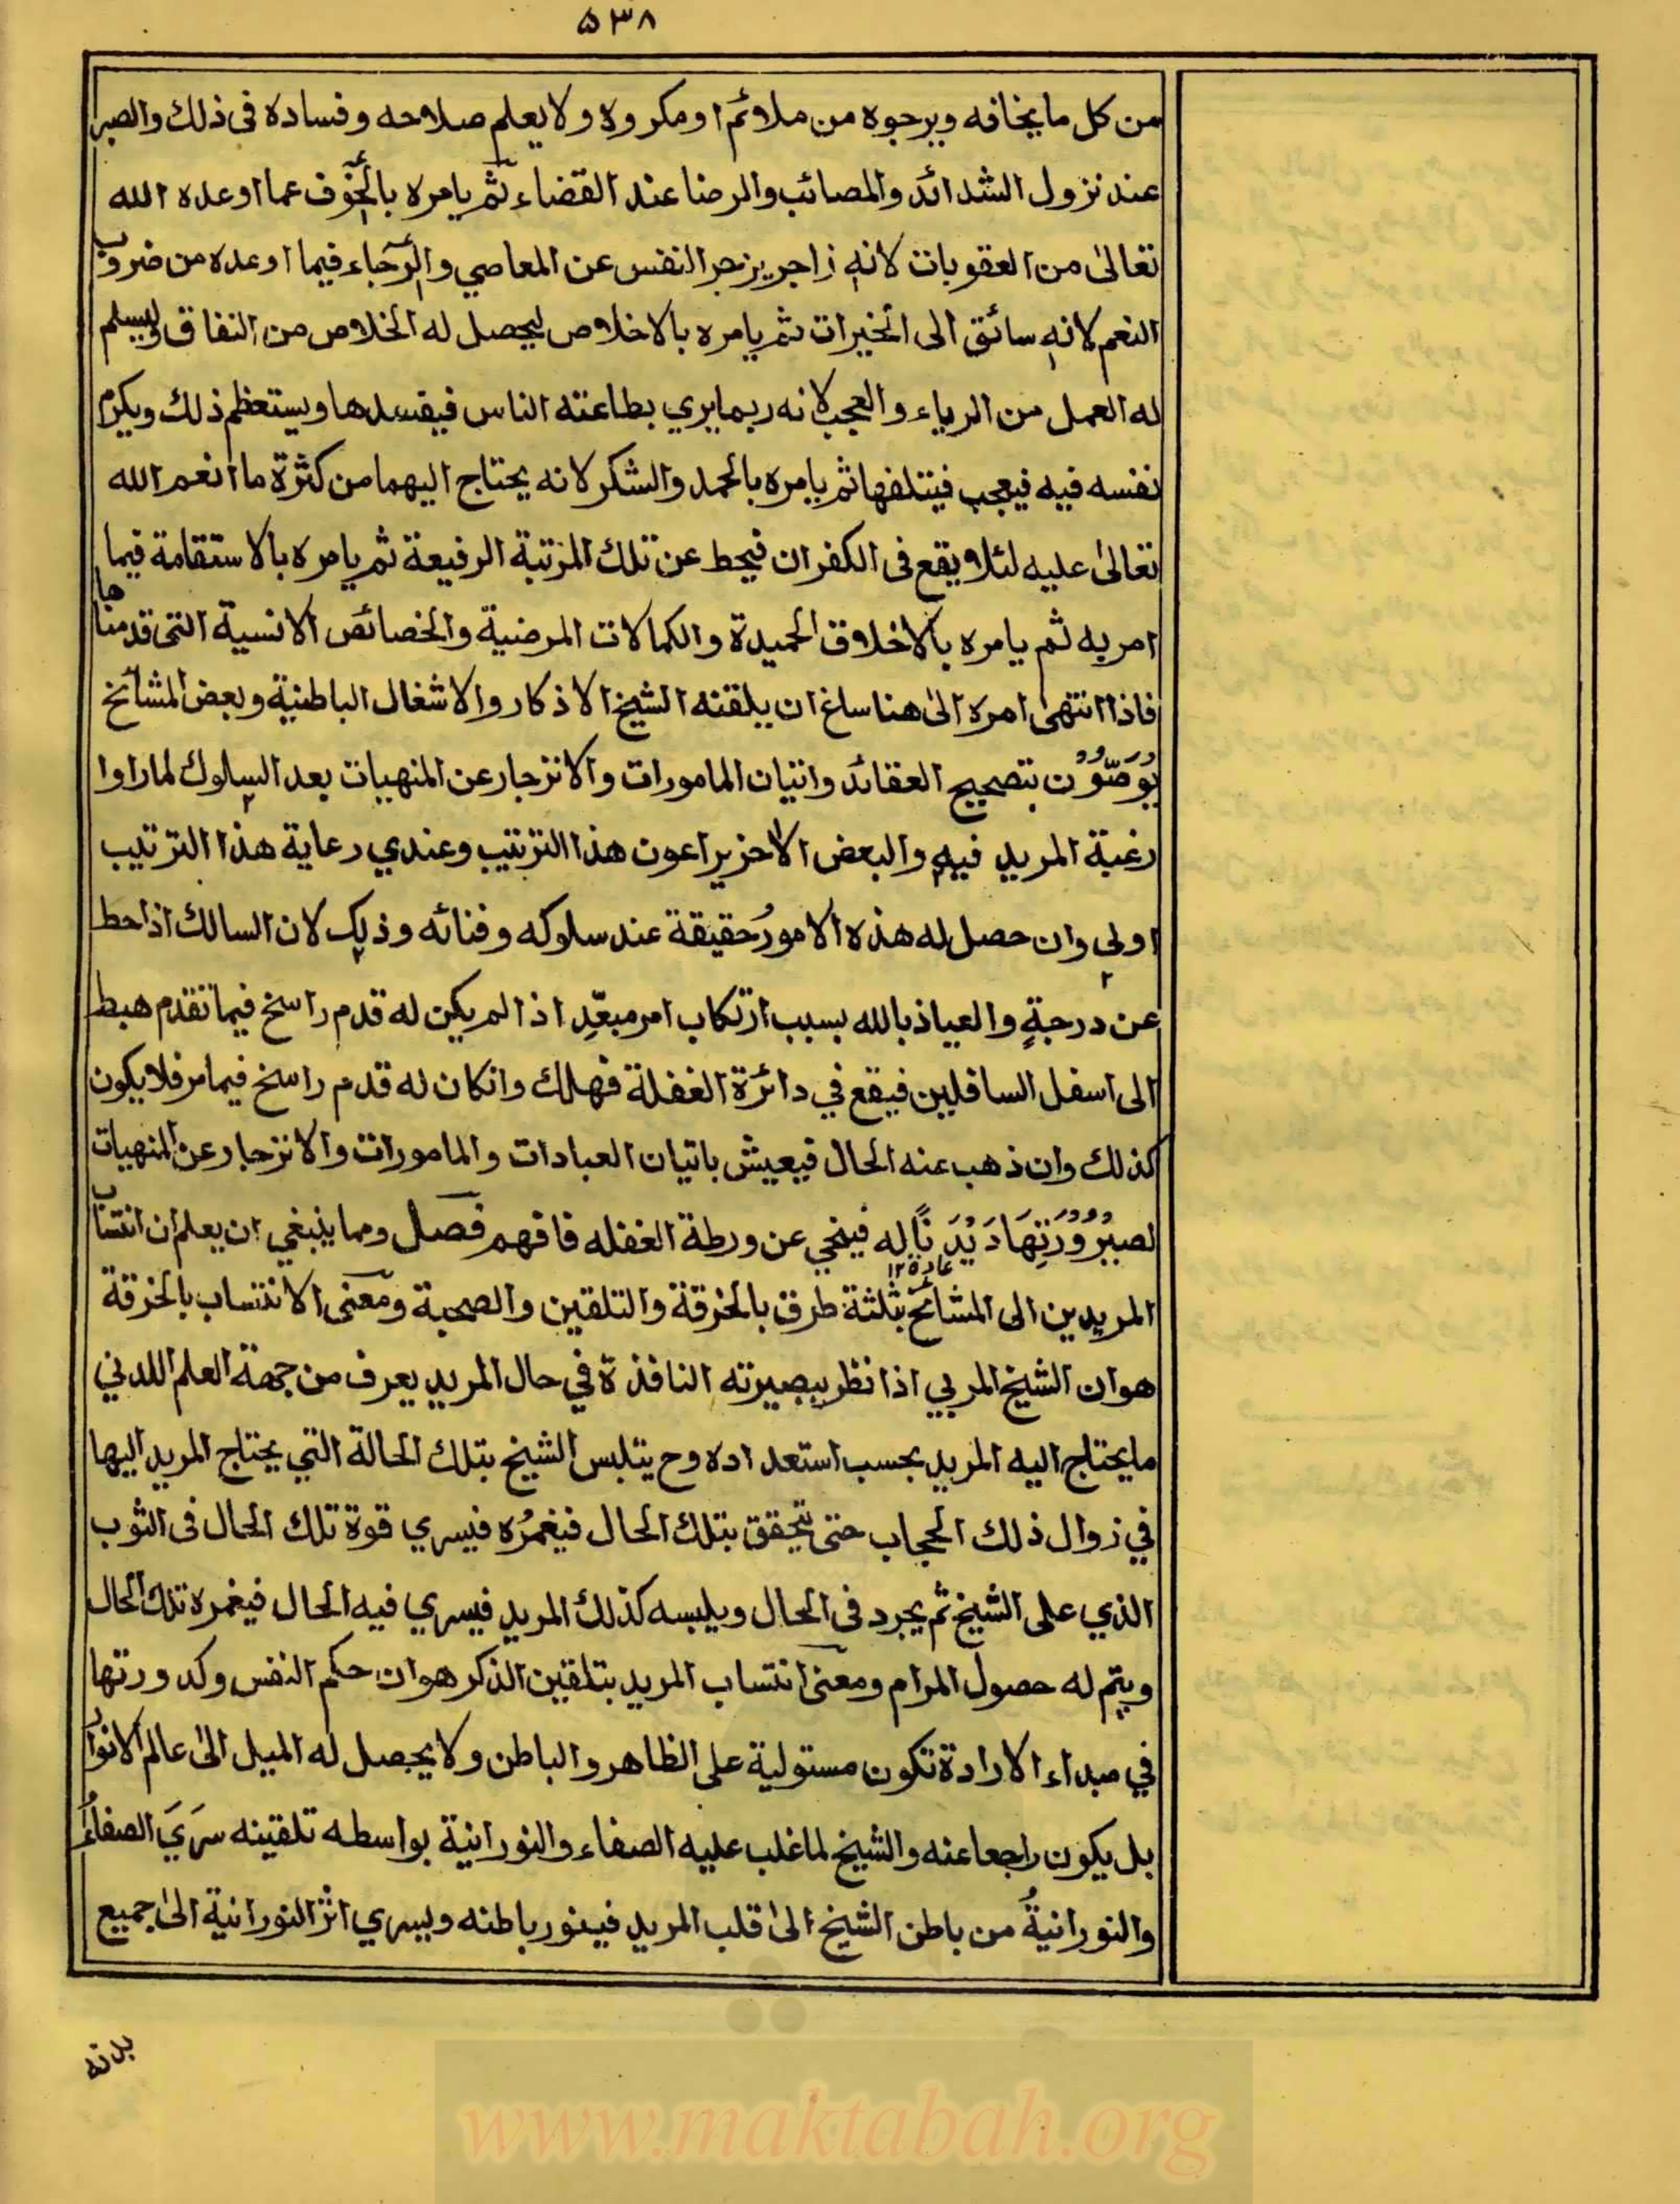 ۵۳۸
من كل ما يخافه ويرجوه من ملائم او مكروه ولا يعلم صلاحه وفساده فى ذلك والصبر
عند نزول الشدائد والمصائب والرضا عند القضاء ثم يامره بالخوف عما اوعده الله
تعالىٰ من العقوبات لانه زاجر يزجر النفس عن المعاصي والرجاء فيما اوعده من ضروب
النعم لانه سائق الى الخيرات ثم يامره بالاخلاص ليحصل له الخلاص من النفاق وليسلم
له العمل من الرياء والعجب لانه ربما يري بطاعته الناس فيفسدها ويستعظم ذلك ويكرم
نفسه فيه فيعجب فيتلفها ثم يامره بالحمد والشكر لانه يحتاج اليهما من كثرة ما انعم الله
تعالىٰ عليه لئلا يقع فى الكفران فيحط عن تلك المرتبة الرفيعة ثم يامره بالاستقامة فيما
امر به ثم يامره بالاخلاق الحميدة والكمالات المرضية والخصائص الانسية التى قدمناها
فاذا انتهىٰ امره الىٰ هنا ساغ ان يلقنه الشيخ الاذكار والاشغال الباطنية وبعض المشائخ
يُوَصُّوْن بتصحيح العقائد واتيان المامورات والانزجار عن المنهيات بعد السلوك لما راوا
رغبة المريد فيه والبعض الاخر يراعون هذا الترتيب وعندي رعاية هذا الترتيب
اولي وان حصل له هذه الامورُ حقيقة عند سلوكه وفنائه وذلك لان السالك اذا حط
عن درجةٍ والعياذ بالله بسبب ارتكاب امر مبعّدِ اذا لم يكن له قدم راسخ فيما تقدم هبط
الى اسفل السافلين فيقع في دائرة الغفلة فهلك وانكان له قدم راسخ فيما مر فلا يكون
كذلك وان ذهب عنه الحال فيعيش باتيان العبادات والمامورات والانزجار عن المنهيات
لصيرُوْرَتِهَا دَيْدَنًا له فينجي عن ورطة الغفله فافهم فصل ومما ينبغي ان يعلم ان انتساب
عادة ١٢
المريدين الى المشائخ بثلثة طرق بالخرقة والتلقين والصحبة ومعنى الانتساب بالخرقة
هو ان الشيخ المربي اذا نظر ببصيرته النافذة في حال المريد يعرف من جهة العلم اللدني
ما يحتاج اليه المريد بحسب استعداده وح يتلبس الشيخ بتلك الحالة التي يحتاج المريد اليها
في زوال ذلك الحجاب حتى يتحقق بتلك الحال فيغمرُه فيسري قوة تلك الحال فى الثوب
الذي على الشيخ ثم يجرد فى الحال ويلبسه كذلك المريد فيسري فيه الحال فيغمره تلك الحال
ويتم له حصول المرام ومعنى انتساب المريد بتلقين الذكر هو ان حكم النفس وكدورتها
في مبداء الارادة تكون مستولية على الظاهر والباطن ولا يحصل له الميل الىٰ عالم الانوار
بل يكون راجعا عنه والشيخ لما غلب عليه الصفاء والنورانية بواسطه تلقينه سَرَيَ الصفاءُ
والنورانيةُ من باطن الشيخ الىٰ قلب المريد فينور باطنه ويسري اثر النورانية الىٰ جميع
بدنه
www.maktabah.org